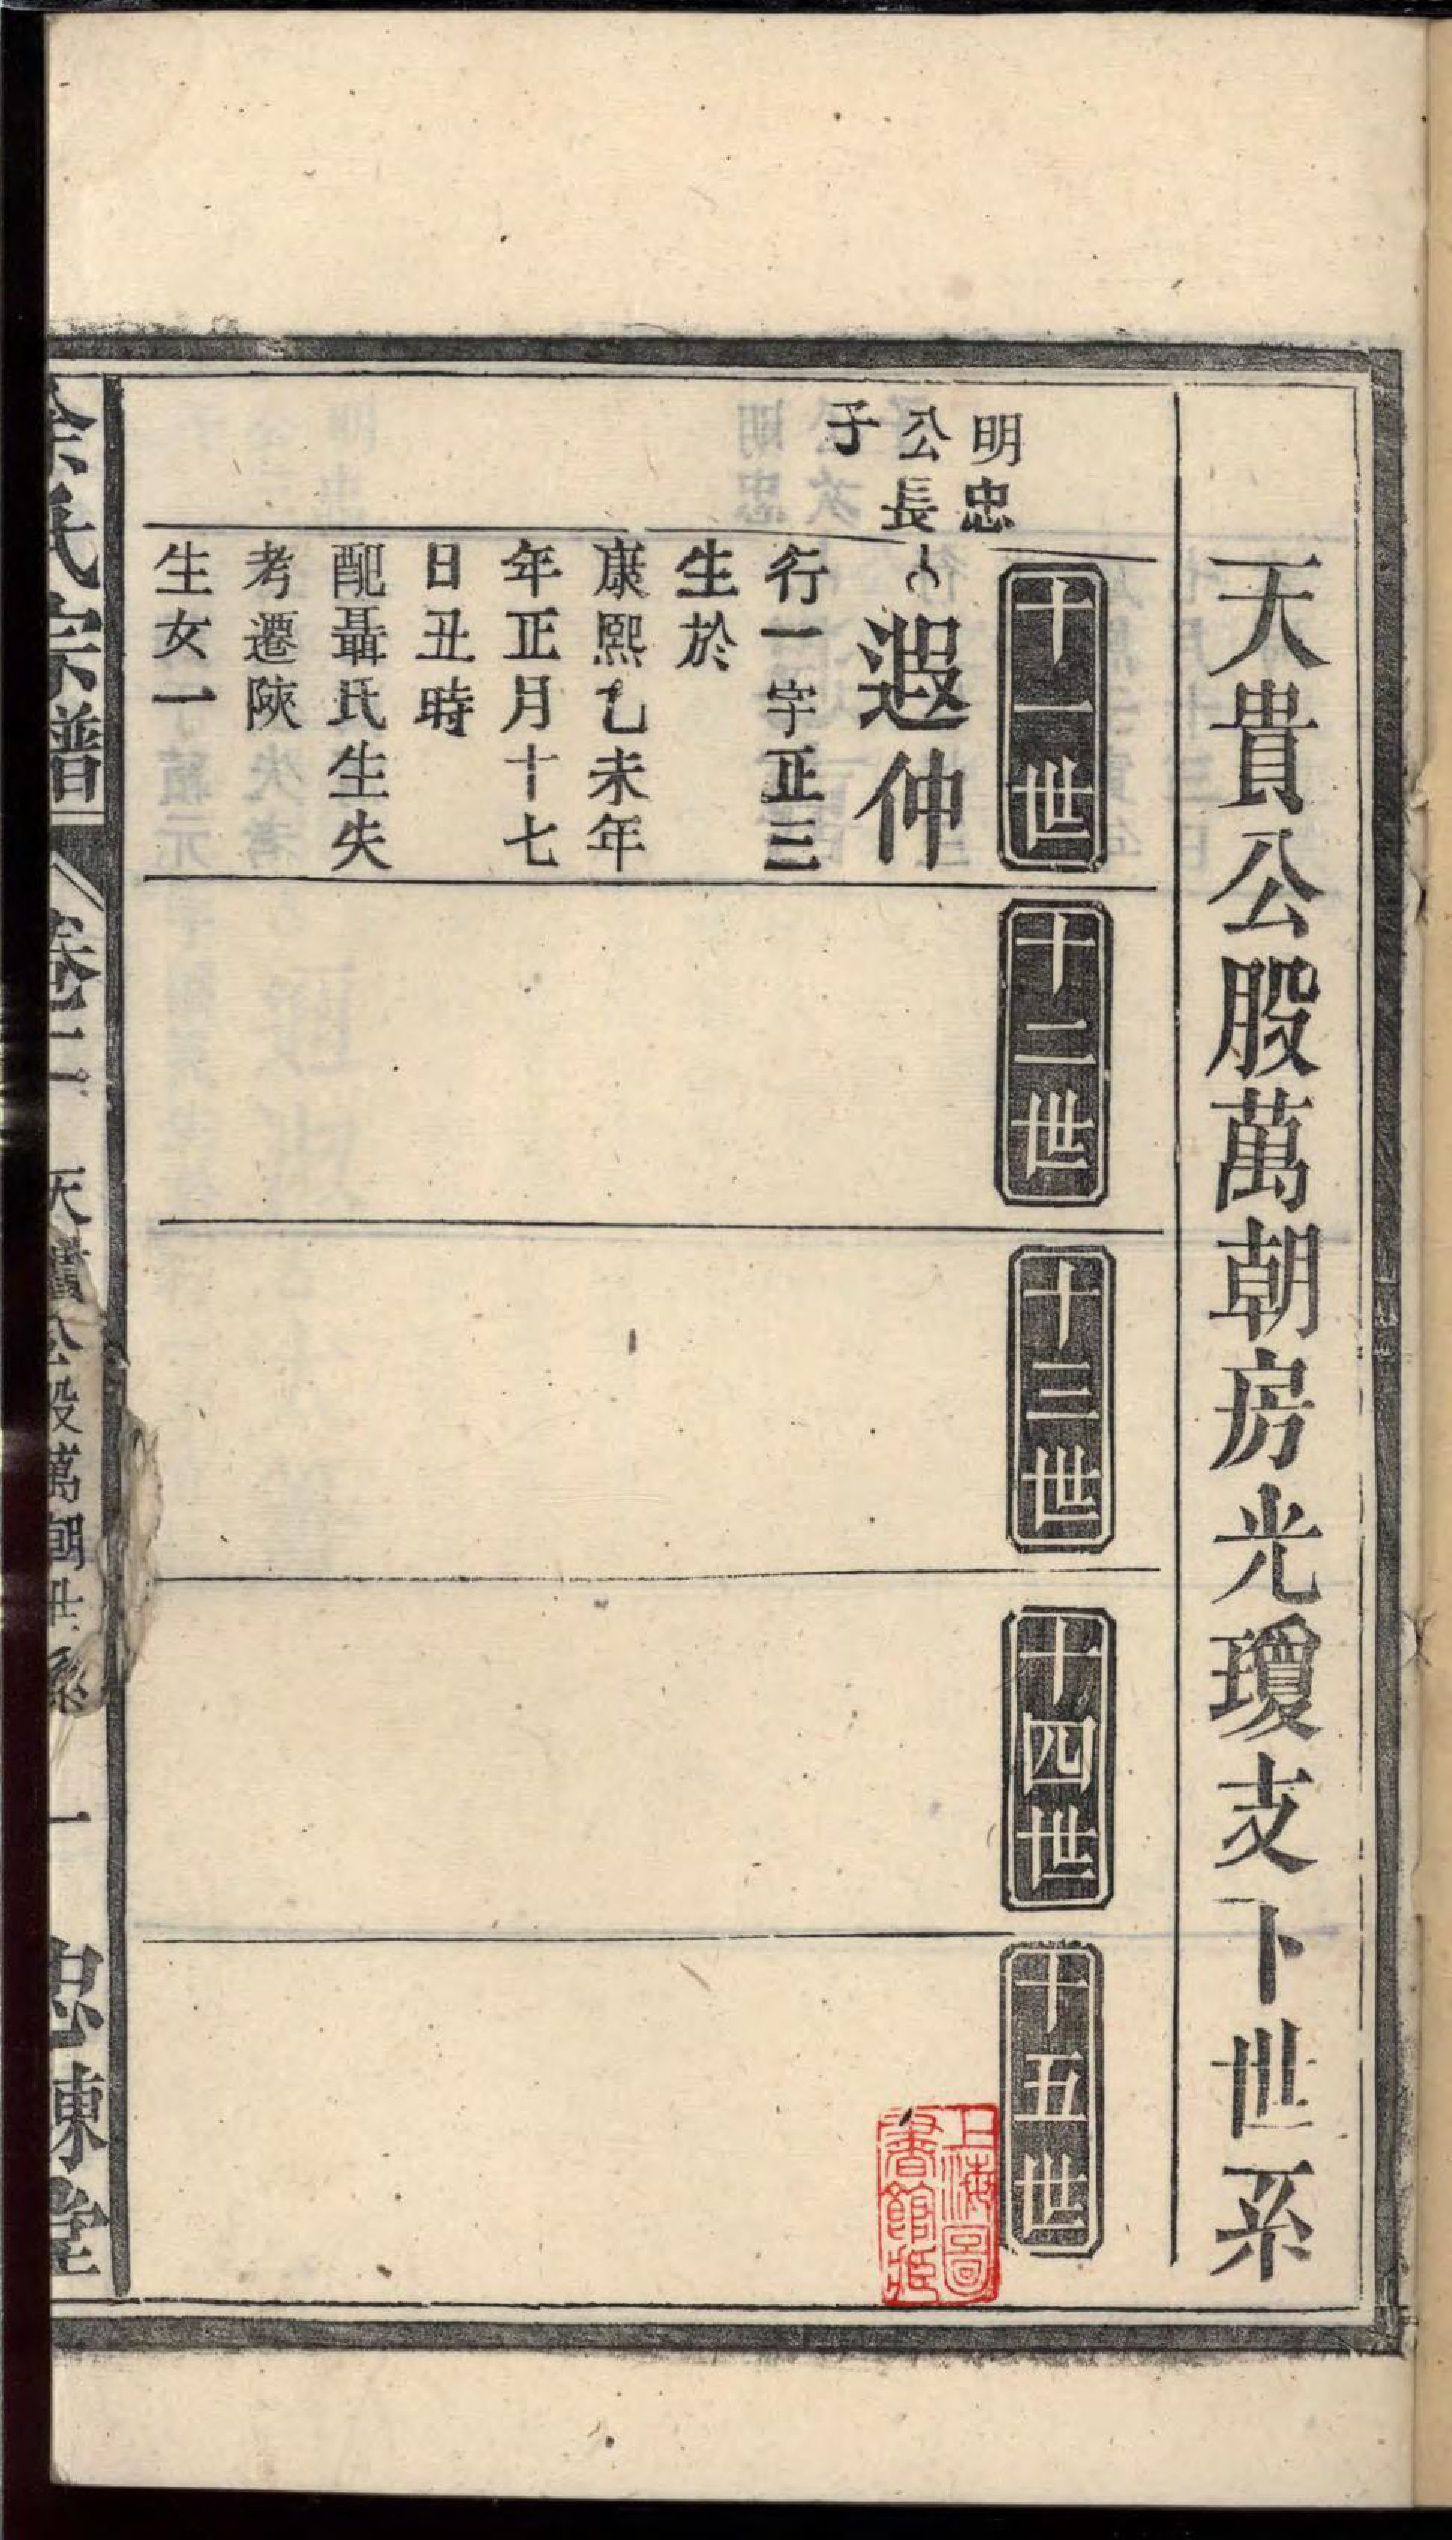 天貴公股萬朝房光瓊支卜世系
十一世
十二世
十三世
十四世
十五世
明忠
公長
子
遐仲
行一字正三
生於
康熙乙未年
年正月十七
日丑時
配聶氏生失
考遷陝
生女一
氏宗譜
卷二
天貴公股萬朝世系
一
忠陳堂
上海圖
書館藏